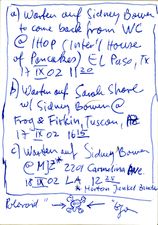 a) Warten auf Sidney Bowen
to come back from WC
@ IHOP (Inter'l House
of Pancakes) EL Paso, TX
17 IX 02 11 20
b) Warten auf Sarah Shore
w/ (Sidney Bowen @
Frog & Firkin, Tuscon, AZ
17 IX 02 16 15
c) Warten auf Sidney Bowen
@ MJZ* 2201 Carmelina Ave.
18 IX 02 LA 12 25
* Morton Jankel
Polaroid